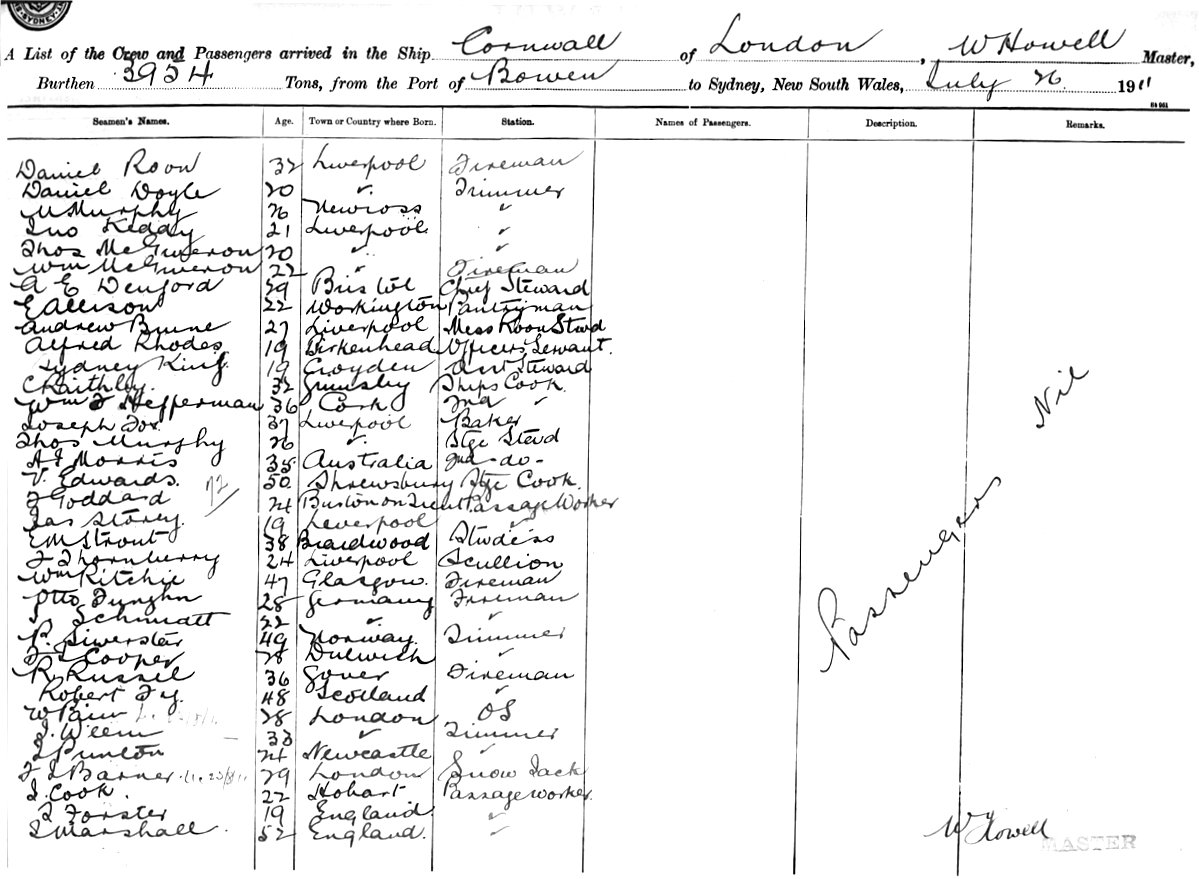 SYDNEY
A List of the Crew and Passengers arrived in the Ship Cornwall of London, W Howell Master,
Burthen 3954 Tons, from the Port of Bowen to Sydney, New South Wales, July 26 1911
Seamen's Names. Age. Town or Country where Born. Station. Names of Passengers. Description. Remarks.
Daniel Roon 32 Liverpool Fireman
Daniel Doyle 20 " Trimmer
M Murphy 26 Newross "
Jno Keddy 21 Liverpool "
Thos McGiveron 20 " "
Wm McGiveron 22 " Fireman
A E Denford 29 Bristol Chief Steward
E Allison 22 Workington Pantryman
Andrew Brune 27 Liverpool Mess Room Stwd
Alfred Rhodes 19 Birkenhead Officers Servant.
Sydney King. 19 Croyden Asst Steward
C Raithby. 32 Grimsby Ships Cook.
Wm J Hefferman 36 Cork 2nd "
Joseph Fox. 37 Liverpool Baker
Thos Murphy 26 " Stge Stewd
A J Morris 35 Australia 2nd - do -
V. Edwards. 50 Shrewsbury Stge Cook.
J Goddard 72 24 Burton on Trent Passage Worker
Jas Storey. 19 Liverpool "
E M Strout 38 Braidwood Stwdess
J Thornberry 24 Liverpool Scullion
Wm Ritchie 47 Glasgow. Fireman
Otto 28 Germany Fireman
Schmidtt 22 " "
P. Siverster 49 Norway. Trimmer
Cooper 28 Dulwich "
R. Russel 36 Gover Fireman
Robert Fy. 48 Scotland "
W Bain 28 London OS
J. Weem 33 " Trimmer
J Punton 24 Newcastle "
F J Barner 29 London Snow Jack
J. Cook. 22 Hobart Passage worker.
J Forster 19 England. "
J Marshall. 52 England. "
Passengers Nil
W Howell
MASTER